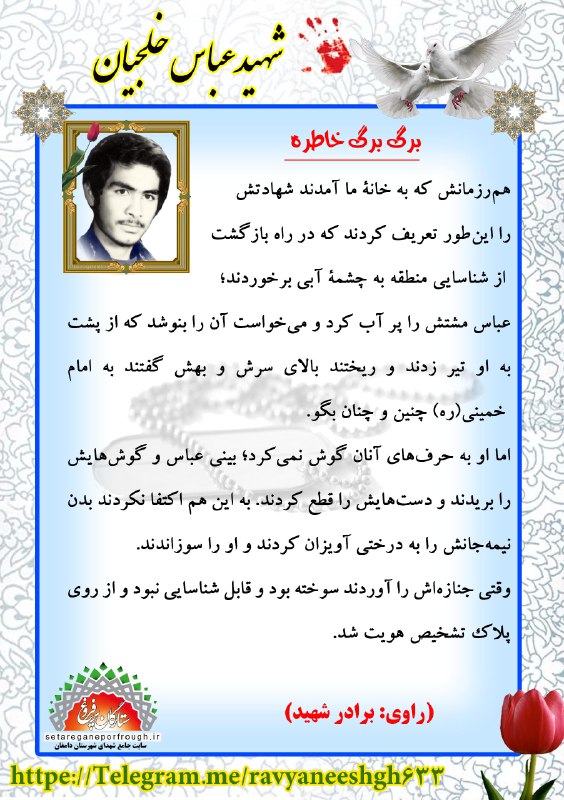 شهید عباس خلجیان
برگ برگ خاطره
هم‌رزمانش که به خانهٔ ما آمدند شهادتش
را این‌طور تعریف کردند که در راه بازگشت
از شناسایی منطقه به چشمهٔ آبی برخوردند؛
عباس مشتش را پر آب کرد و می‌خواست آن را بنوشد که از پشت
به او تیر زدند و ریختند بالای سرش و بهش گفتند به امام
خمینی(ره) چنین و چنان بگو.
اما او به حرف‌های آنان گوش نمی‌کرد؛ بینی عباس و گوش‌هایش
را بریدند و دست‌هایش را قطع کردند. به این هم اکتفا نکردند بدن
نیمه‌جانش را به درختی آویزان کردند و او را سوزاندند.
وقتی جنازه‌اش را آوردند سوخته بود و قابل شناسایی نبود و از روی
پلاک تشخیص هویت شد.
(راوی: برادر شهید)
ستارگان پرفروغ
setareganeporfrough.ir
سایت جامع شهدای شهرستان دامغان
https://Telegram.me/ravyaneeshgh۶۳۳